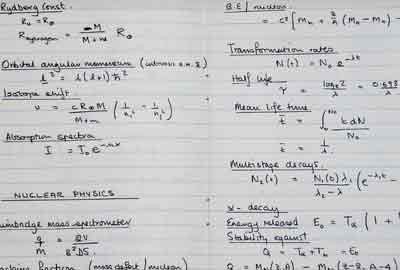 Rydberg Const.
R∞ = R∞
R Hydrogen = M / M+m R∞
Orbital angular momentum
L² = l(l+1) ħ²
Isotope shift.
υ = c R∞ M / M+m ( 1/n₁² - 1/n₂² )
Absorption spectra
I = I₀ e
NUCLEAR PHYSICS
mass spectrometer
q/M = 2V / B²DS
fraction (mass defect / nucleon)
B.E / nucleon
= c² [ Mn +
Transformation rates
N(t) = N₀ e^-λt
Half life
τ = log e 2 / λ = 0.693
Mean life time
t̄ = ∫ t dN / N₀
t̄ = 1/λ
Multistage decays.
N₂(t) = N₁(0) λ₁ / λ₂ - λ ( e^-λ₁t -
α - decay
Energy released E₀ = Tα ( 1 +
Stability against
Q = Tα + Tb = E₀